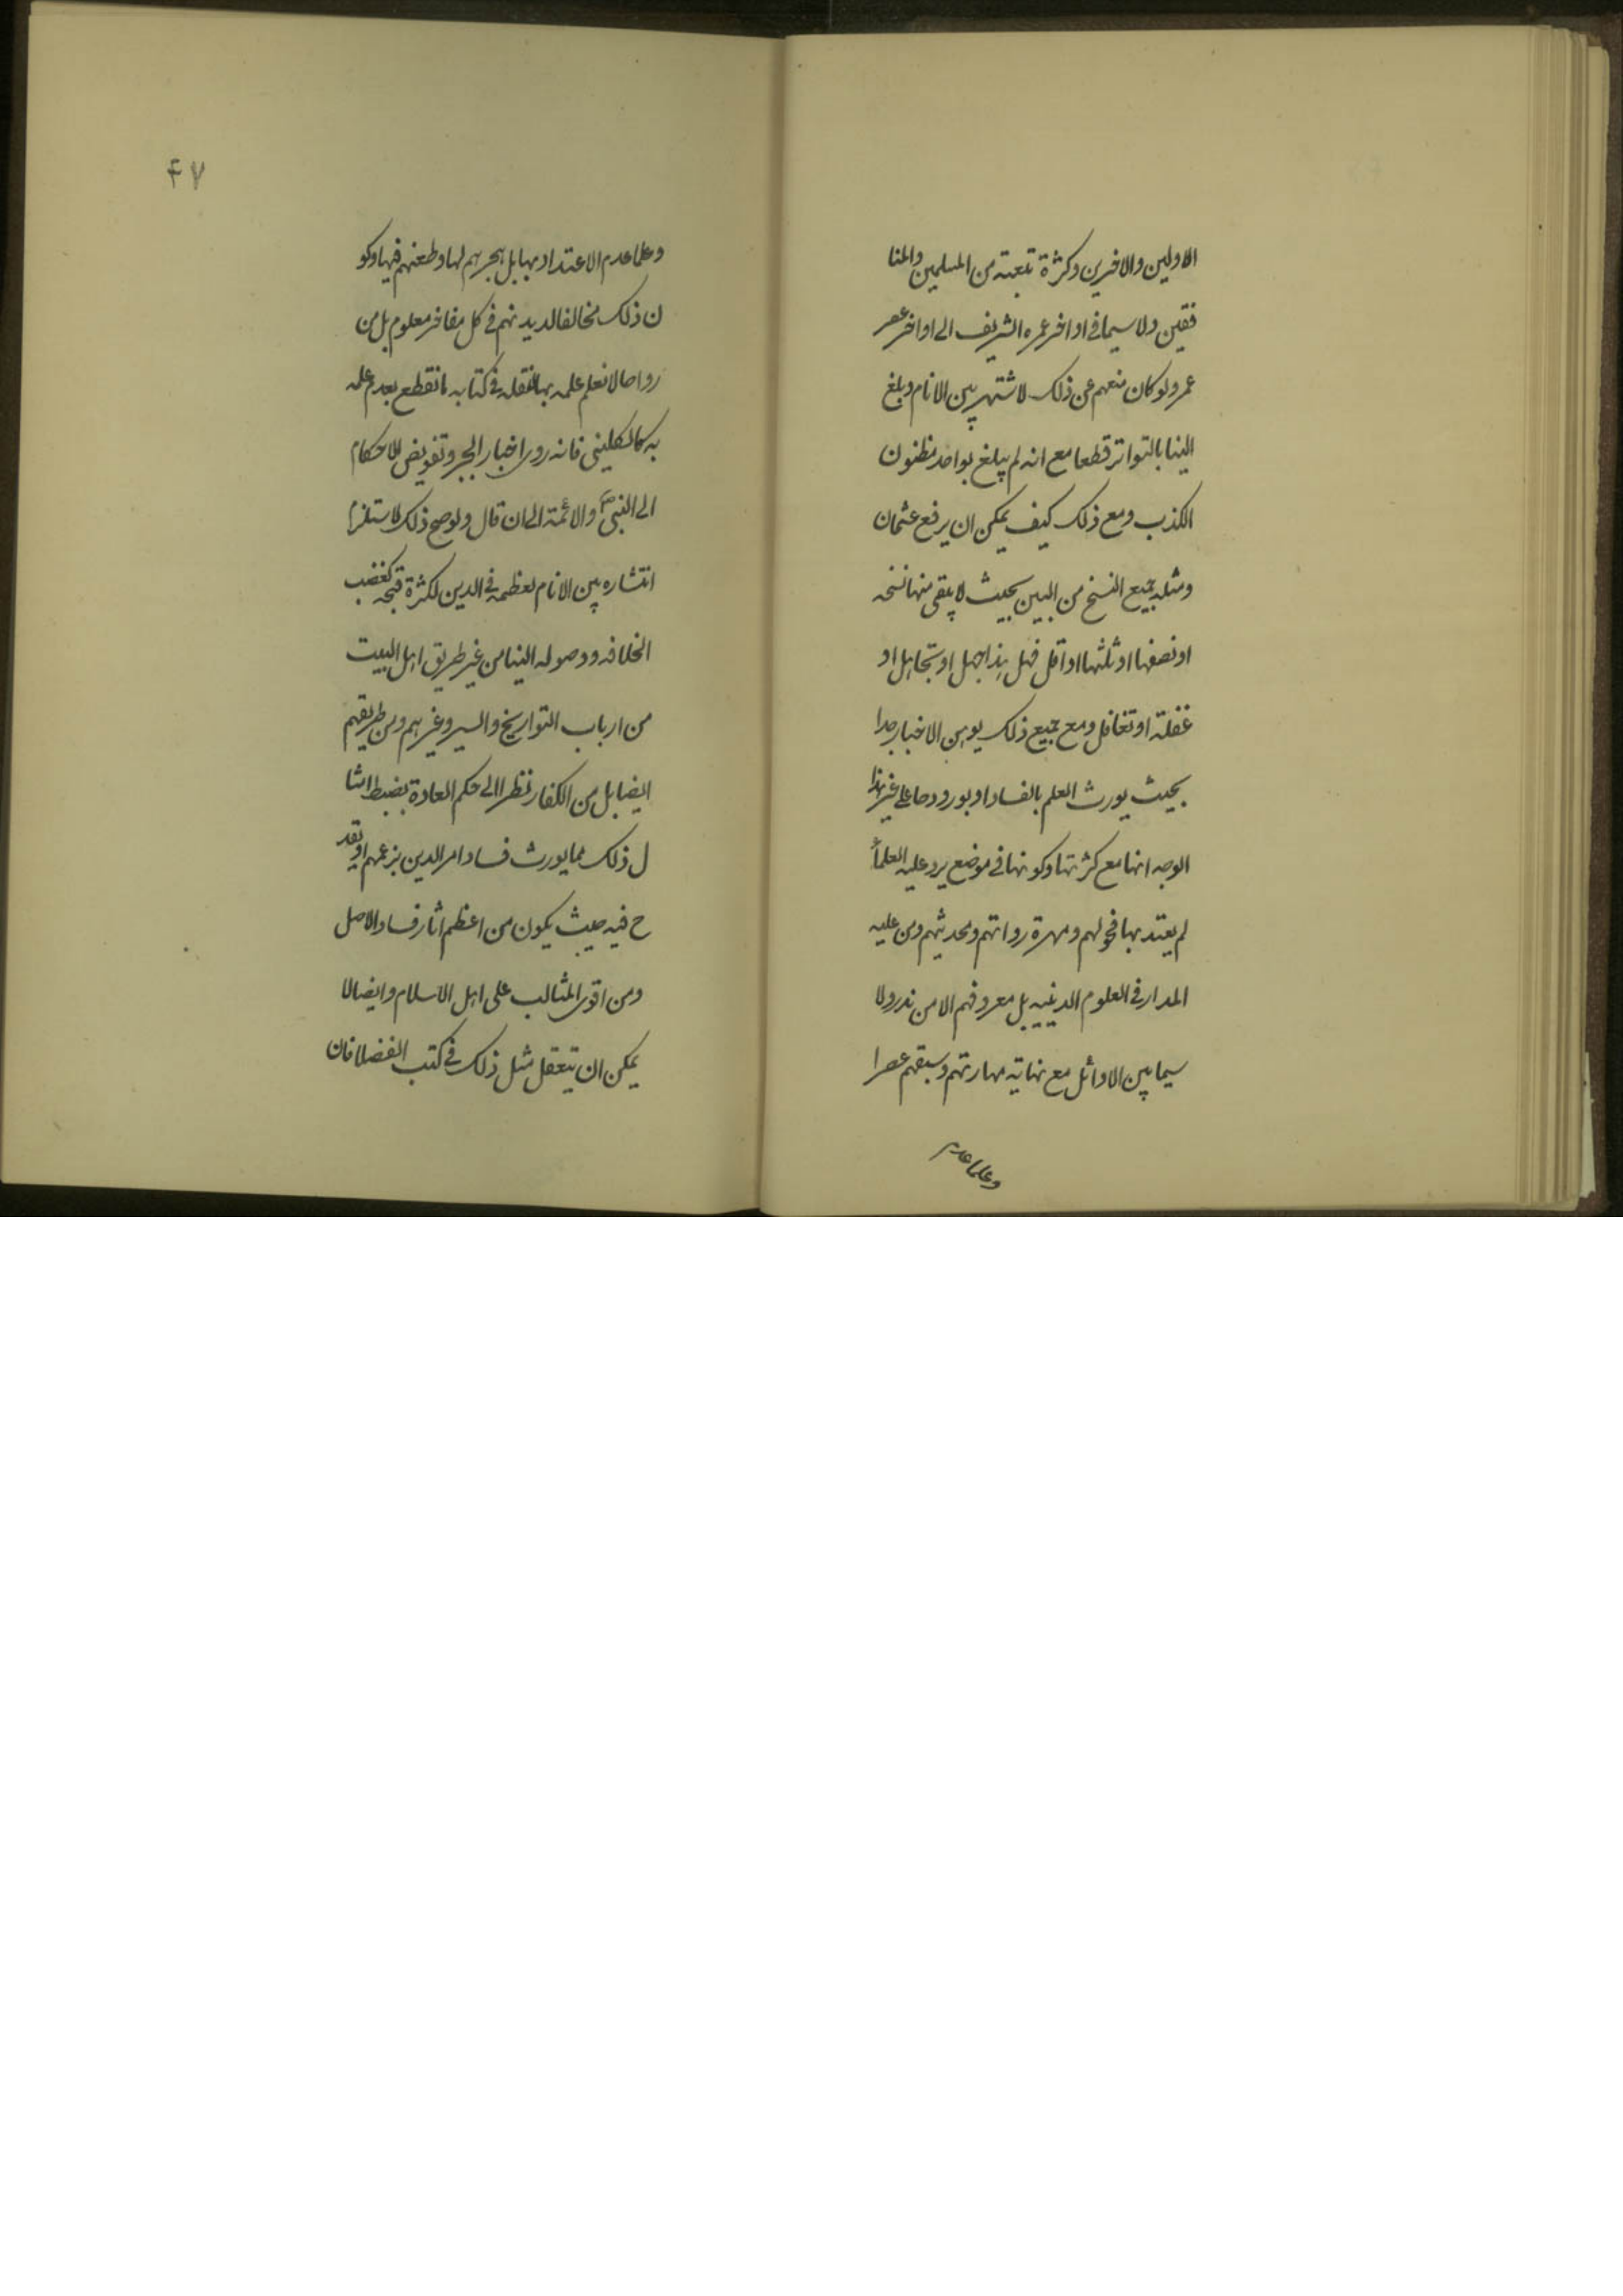 الاولين والاخرين وكثرة تبعته من المسلمين والمنا
فقين ولا سيما فى اواخر عمره الشريف الى اواخر عصر
عمر ولو كان منعهم عن ذلك لاشتهر بين الانام وبلغ
الينا بالتواتر قطعا مع انه لم يبلغ بواحد مظنون
الكذب ومع ذلك كيف يمكن ان يرفع عثمان
ومثله جميع النسخ من البين بحيث لا يبقى منها نسخه
او نصفها او ثلثها او اقل فهل هذا جهل او تجاهل او
غفلة او تغافل ومع جميع ذلك يوهن الاخبار جدا
بحيث يورث العلم بالفساد او بورودها على غير هذا
الوجه انها مع كثرتها وكونها فى موضع يرد عليه العلمأ
لم يعتد بها فحولهم ومهرة رواتهم ومحدثيهم ومن عليه
المدار فى العلوم الدينيه بل معروفهم الا من ندر ولا
سيما بين الاوائل مع نهاية مهارتهم وسبقهم عصرا
وعلما عدم
۴۷
وعلما عدم الاعتداد بها بل بهجرهم لها وطعنهم فيها وكو
ن ذلك مخالفا لديدنهم فى كل مفاخر معلوم بل من
رواها لا نعلم علمه بها لنقله فى كتابه ما نقطع بعدم علمه
به كالكلينى فانه روى اخبار الجبر وتفويض الاحكام
الى النبى ص والائمة الى ان قال ولو صح ذلك لاستلزم
انتشاره بين الانام لعظمه فى الدين لكثرة قبحه كغصب
الخلافه ووصوله الينا من غير طريق اهل البيت
من ارباب التواريخ والسير وغيرهم ومن طريقهم
ايضا بل من الكفار نظرا الى حكم العادة بضبط امثا
ل ذلك مما يورث فساد امر الدين بزعمهم او يقد
ح فيه حيث يكون من اعظم اثار فساد الاصل
ومن اقوى المثالب على اهل الاسلام وايضا لا
يمكن ان يتعقل مثل ذلك فى كتب الفضلا فان